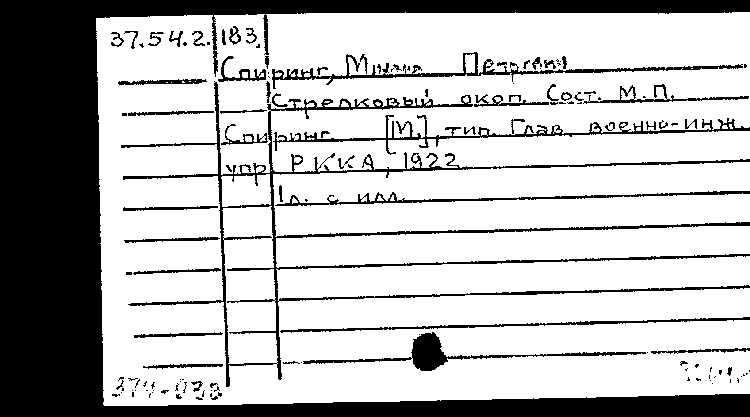 37.54.2. 183.
Спиринг, Михаил Петрович
Стрелковый окоп. Сост. М. П.
Спиринг. [М.], тип. Глав. военно-инж.
упр. РККА, 1922
1 л. с илл.
374-038